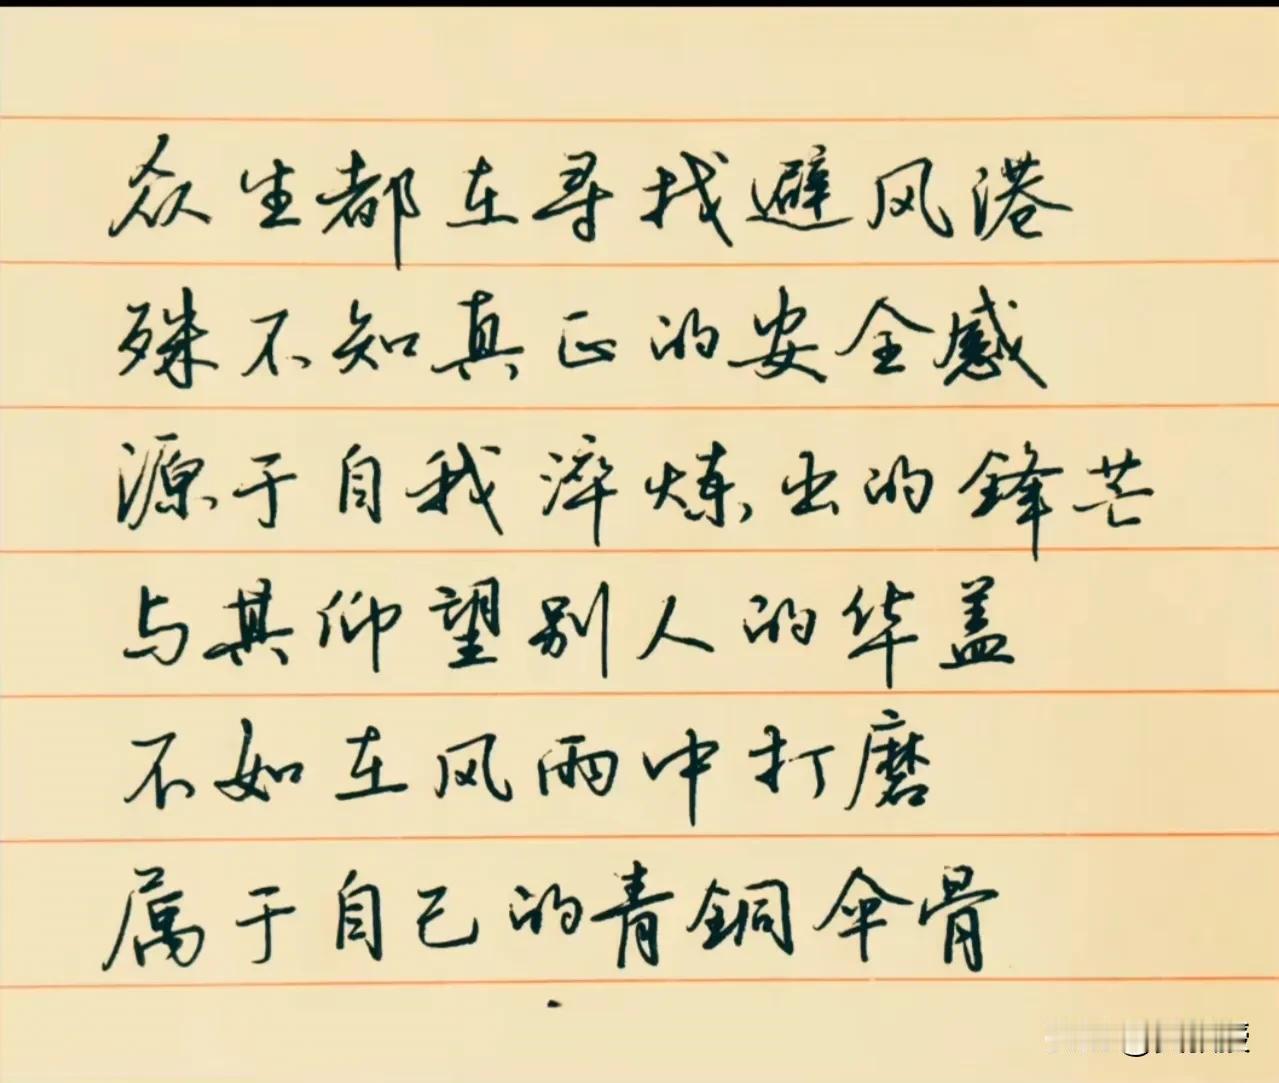 众生都在寻找避风港
殊不知真正的安全感
源于自我淬炼出的鋒芒
与其仰望别人的华盖
不如在风雨中打磨
属于自己的青銅伞骨